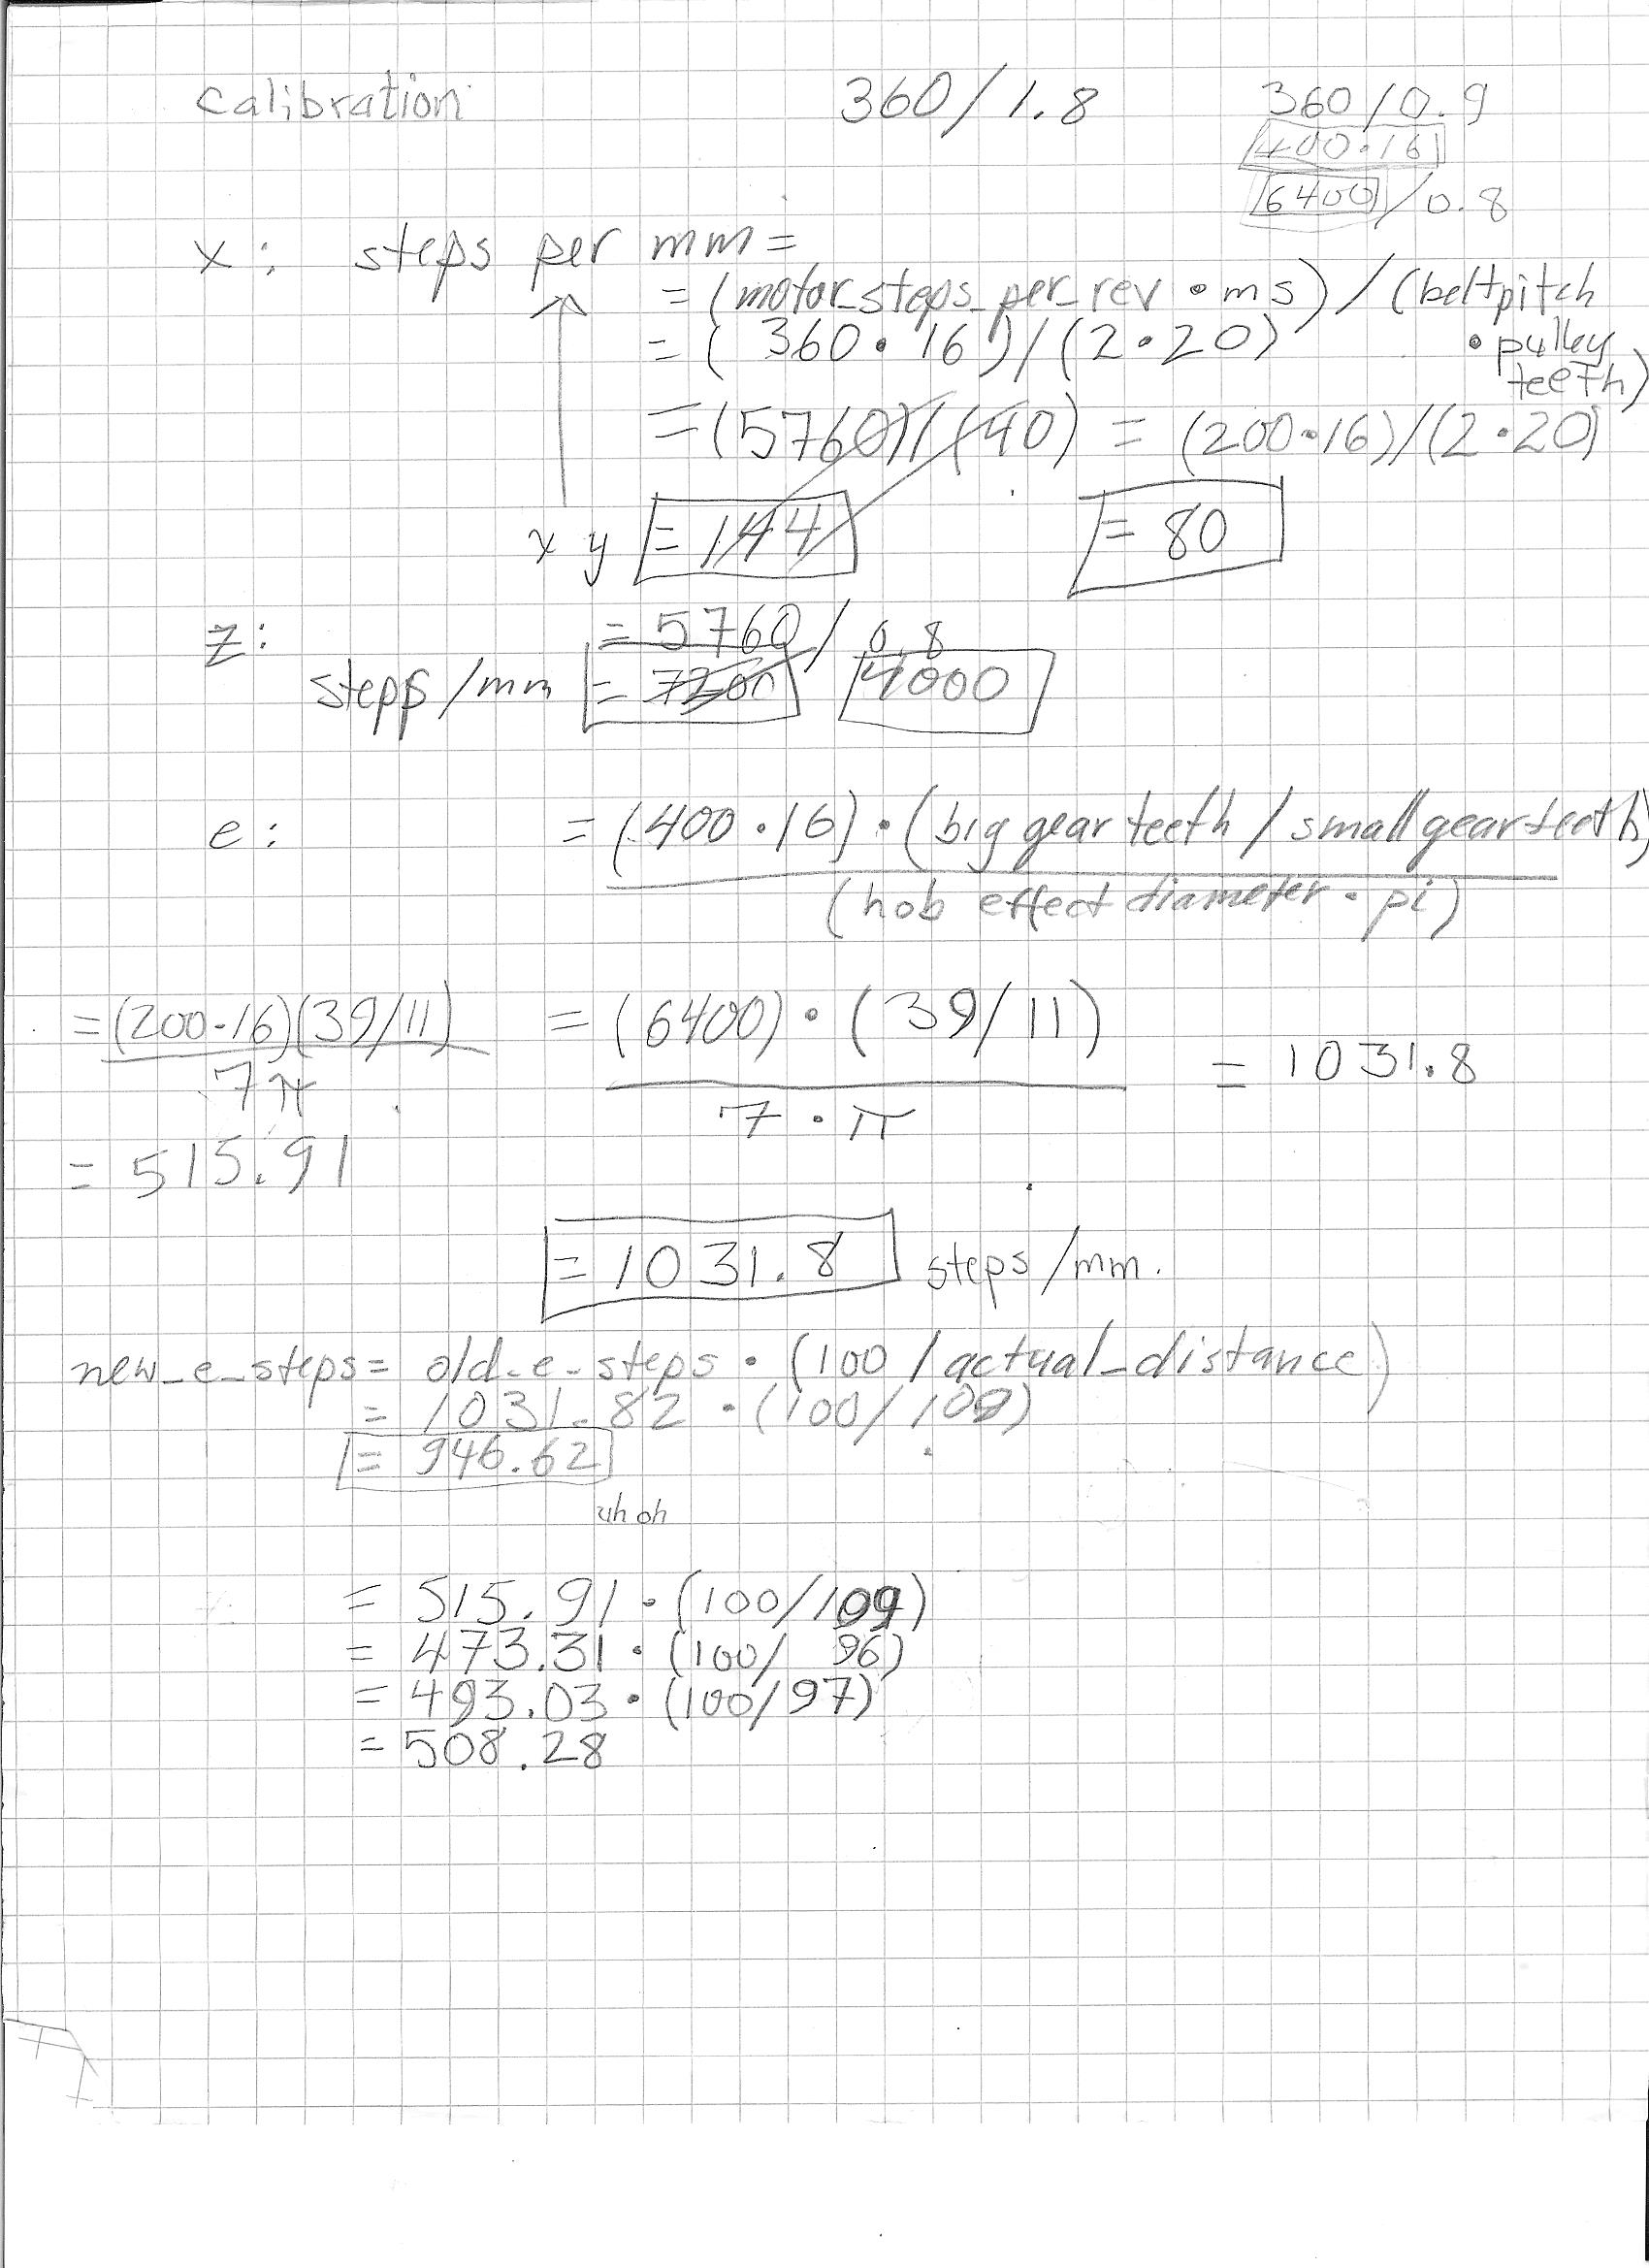 calibration 360/1.8 360/0.9
400·16
6400/0.8
x: steps per mm=
=(motor_steps_per_rev·ms)/(beltpitch
·pulley
teeth)
=(360·16)/(2·20)
=(5760)/(40) = (200·16)/(2·20)
x y =144 =80
z: =5760/0.8
steps/mm =7200 4000
e: =(400·16)·(big gear teeth/small gear teeth)
(hob effect diameter·pi)
=(200·16)(39/11) =(6400)·(39/11) =1031.8
7π 7·π
=515.91
=1031.8 steps/mm.
new_e_steps= old_e_steps·(100/actual_distance)
= 1031.82·(100/109)
= 946.62
uh oh
= 515.91·(100/109)
= 473.31·(100/96)
= 493.03·(100/97)
= 508.28